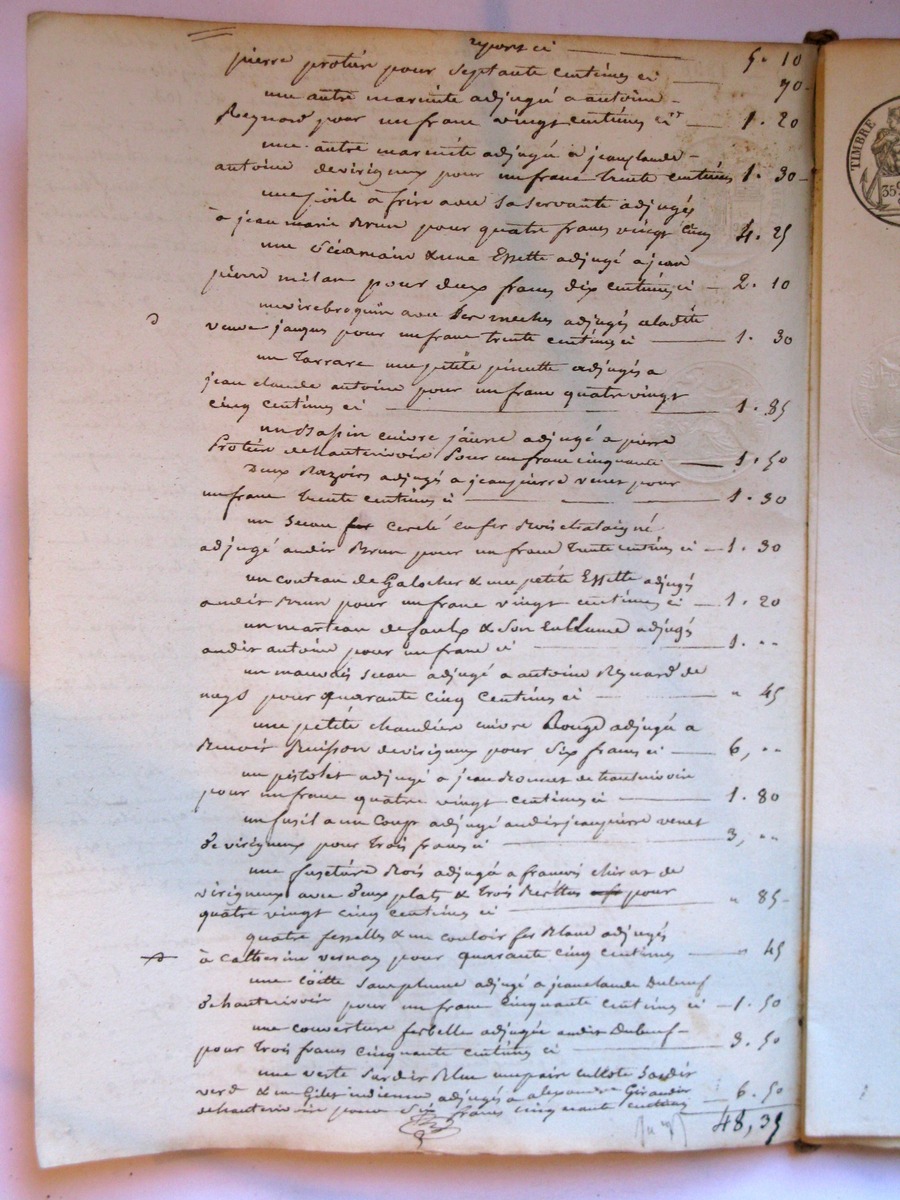 report ci 5. 10
pierre protière pour Septante Centimes ci 70
une autre marmite adjugée a antoine
Reynard pour un franc vingt centimes ci 1. 20
une autre marmite adjugée a jean claude
antoine de virigneux pour un franc trente centimes 1. 30
une poële à frire avec sa servante adjugés
à jean marie Brun pour quatre francs vingt cinq 4. 25
une & une Essette adjugé a jean
pierre milan pour deux francs dix centimes ci 2. 10
un virebroquin avec ses meches adjugés a la dite
veuve jacques pour un franc trente centimes ci 1. 30
un Tarrare une petite pincette adjugés a
jean claude antoine pour un franc quatre vingt
cinq centimes ci 1. 85
un Bassin cuivre jaune adjugé a pierre
Protière de hauterivoire Pour un franc cinquante 1. 50
Deux Razoirs adjugés a jean pierre venet pour
un franc trente centimes ci 1. 30
un Seau fer cerclé en fer Bois chataigné
adjugé audit Brun pour un franc trente centimes ci 1. 30
un couteau de Galocher & une petite Essette adjugés
audit Brun pour un franc vingt centimes ci 1. 20
un marteau de faulx & Son Enclume adjugés
audit antoine pour un franc ci 1. "
un mauvais Seau adjugé a antoine Reynard de
pour quarante cinq Centimes ci " 45
une petite chaudière cuivre Rouge adjugée a
Benoit Buisson de virigneux pour Six francs ci 6, "
un pistolet adjugé a jean de hauterivoire
pour un franc quatre vingt centimes ci 1. 80
un fusil a un Coup adjugé audit jean pierre venet
de virigneux pour Trois francs ci 3, "
une Bois adjugée a francois chirat de
virigneux avec deux plats & trois pour
quatre vingt cinq centimes ci " 85
quatre fesselles & un couloir fer Blanc adjugés
à Catherine vernay pour quarante cinq centimes " 45
une Cöette Sans plume adjugé a jean claude Dubeuf
de hauterivoire pour un franc Cinquante centimes ci 1. 50
une couverture adjugée audit Dubeuf
pour trois francs cinquante centimes ci 3. 50
une veste Bleu une paire cullote
verd & un Gilet indienne adjugés a alexandre Giraudier
de hauterivoire pour Six francs cinquante centimes 6. 50
48, 35
TIMBRE
35